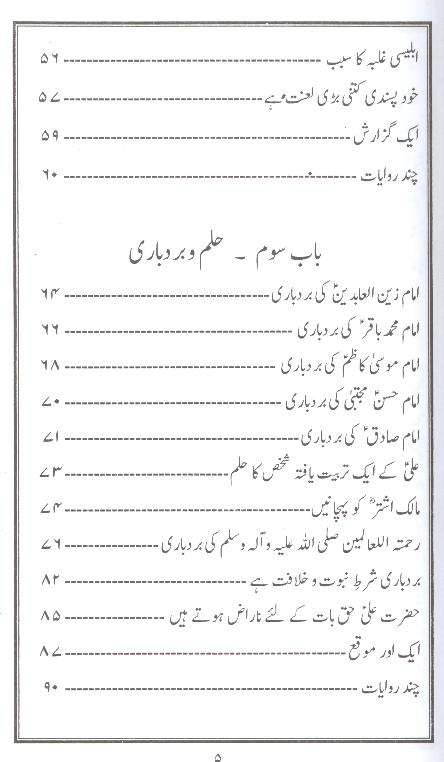 ابلیسی غلبہ کا سبب ------------------------ ۵۶
خود پسندی کتنی بڑی لعنت ہے ------------------------ ۵۷
ایک گزارش ------------------------ ۵۹
چند روایات ------------------------ ۶۰
باب سوم ۔ حلم و بردباری
امام زین العابدینؑ کی بردباری ------------------------ ۶۴
امام محمد باقرؑ کی بردباری ------------------------ ۶۶
امام موسیٰ کاظمؑ کی بردباری ------------------------ ۶۸
امام حسنؑ مجتبیٰ کی بردباری ------------------------ ۷۰
امام صادقؑ کی بردباری ------------------------ ۷۱
علیؑ کے ایک تربیت یافتہ شخص کا حلم ------------------------ ۷۳
مالک اشترؓ کو پہچانیں ------------------------ ۷۴
رحمتہ اللعالمین صلی اللہ علیہ و آلہ وسلم کی بردباری ------------------------ ۷۶
بردباری شرطِ نبوت و خلافت ہے ------------------------ ۸۲
حضرت علیؑ حق بات کے لئے ناراض ہوتے ہیں ------------------------ ۸۵
ایک اور موقع ------------------------ ۸۷
چند روایات ------------------------ ۹۰
۵